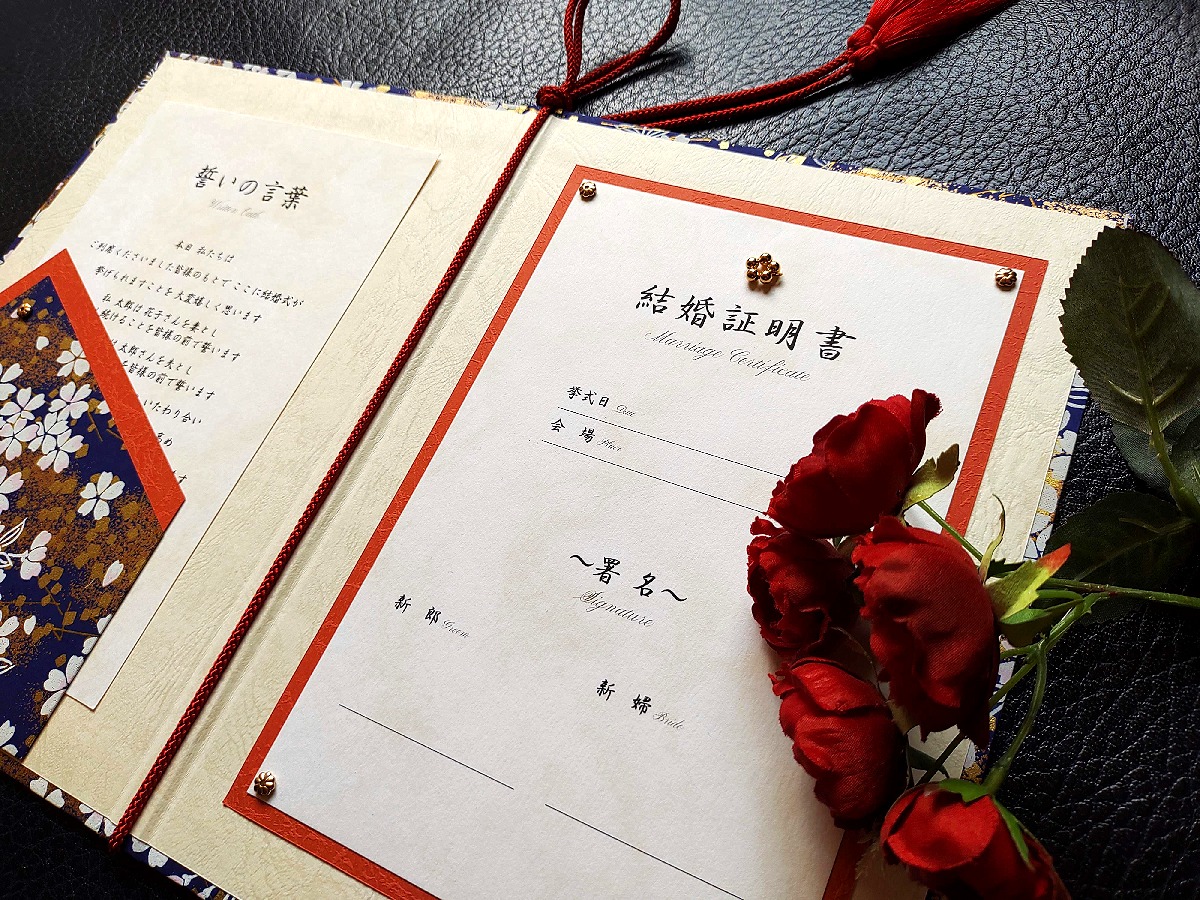 誓いの言葉
本日 私たちは
ご列席くださいました皆様のもとで ここに結婚式が
挙げられますことを 大変嬉しく思います
私 太郎は 花子さんを妻とし
続けることを皆様の前で誓います
太郎さんを夫とし
を皆様の前で誓います
いたわり合い
結婚証明書
Marriage Certificate
挙式日 Date
会 場 Place
～署 名～
Signature
新 郎 Groom
新 婦 Bride